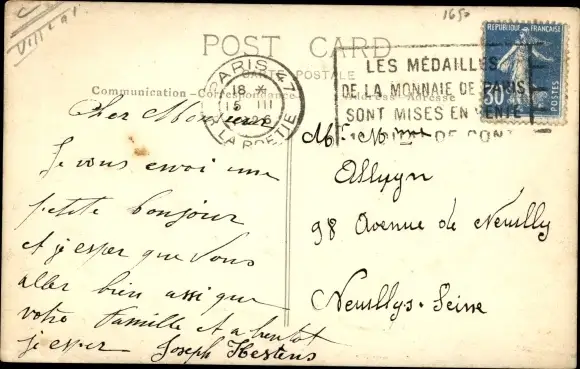 1650
POST CARD
CARTE POSTALE
Communication - Correspondance
Address - Adresse
REPUBLIQUE FRANÇAISE
30
POSTES
PARIS 47
18 *
15 III
R. LA BOETIE
LES MÉDAILLES
DE LA MONNAIE DE PARIS
SONT MISES EN VENTE
DE CONTI
Cher Monsieur
Je vous envoi une
petite bonjour
et j'esper que vous
aller bien assi que
votre famille et a bientot
j'esper Joseph Hestens
Mr Mme
Alluyn
98 Avenue de Neuilly
Neuilly s. Seine